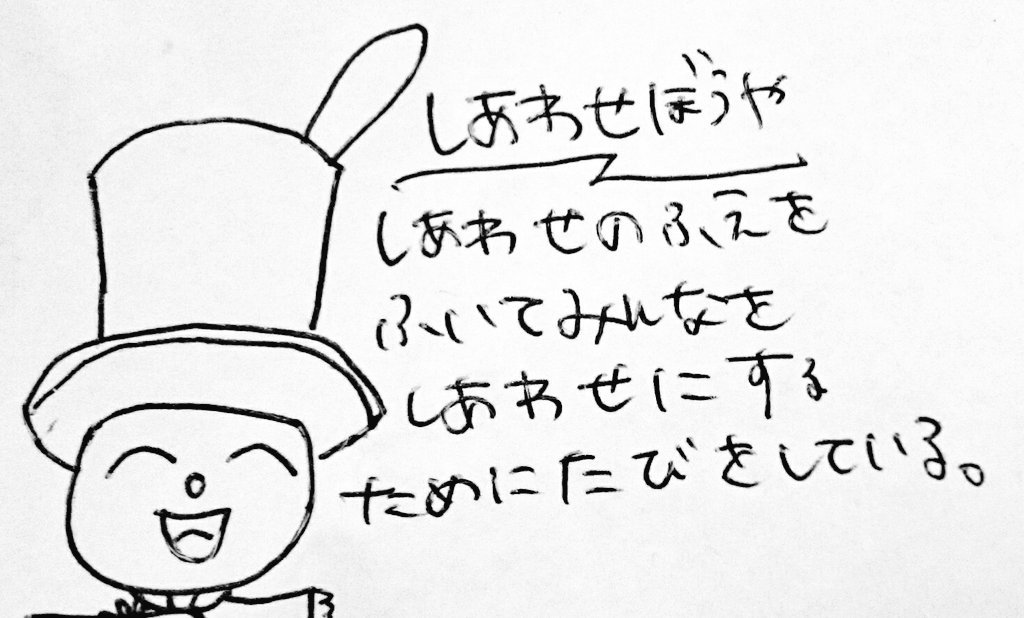 しあわせぼうや
しあわせのふえを
ふいてみんなを
しあわせにする
ためにたびをしている。